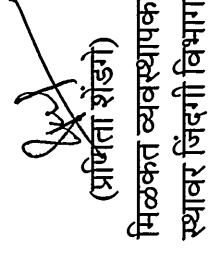 (प्रणिता शेंडगे)
मिळकत व्यवस्थापक
स्थावर जिंदगी विभाग